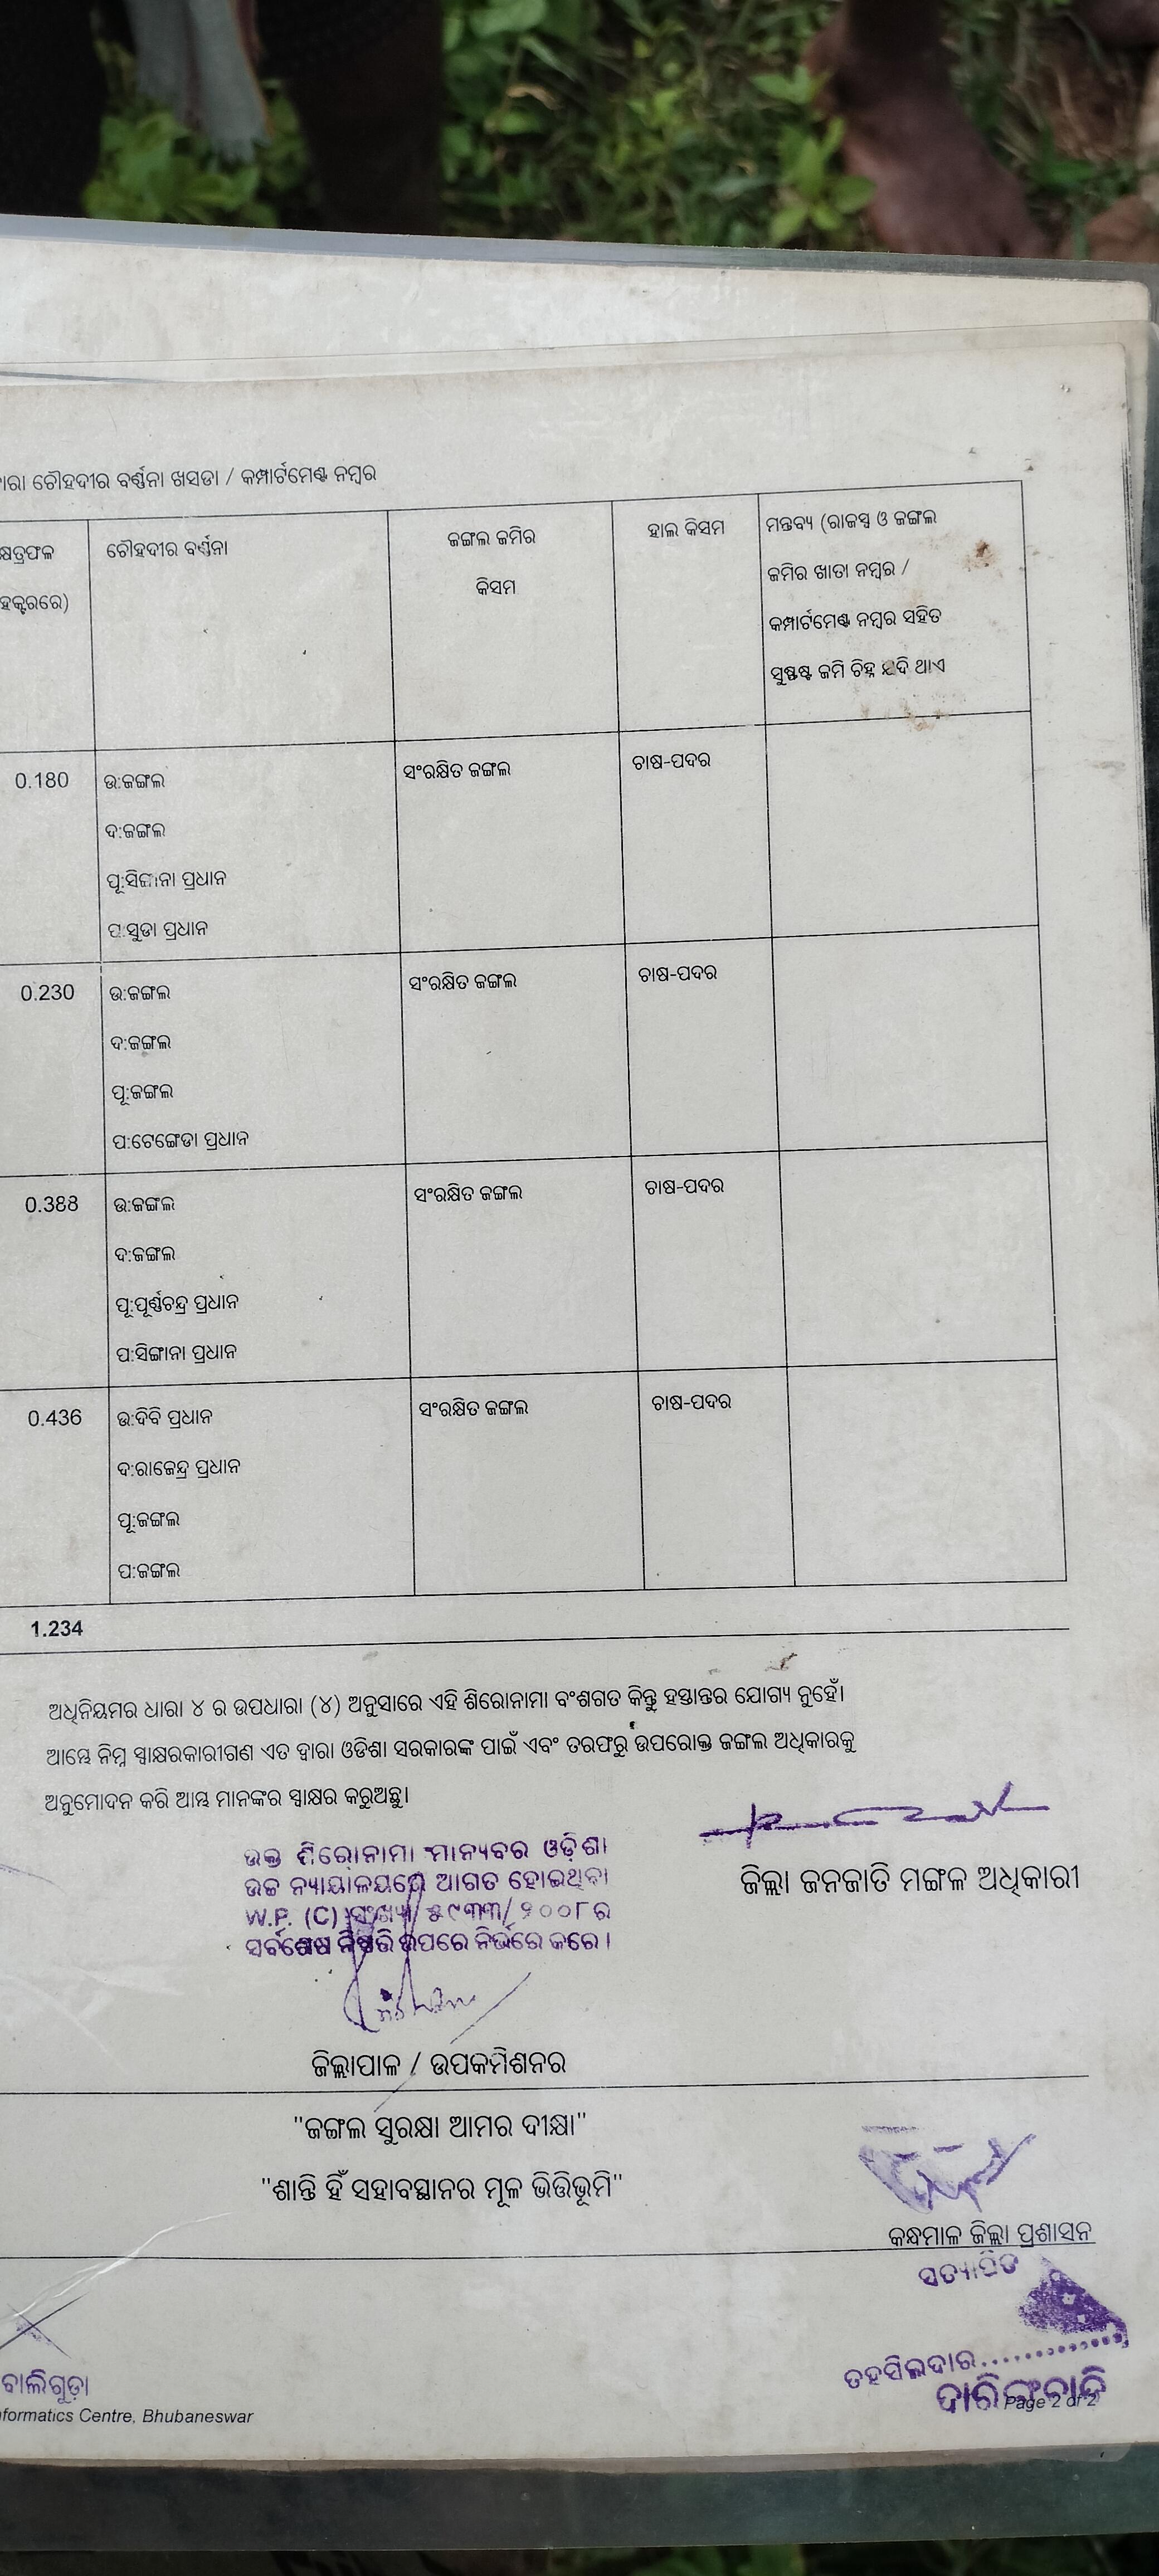 ାରା ଚୌହଦୀର ବର୍ଣ୍ଣନା ଖସଡା / କମ୍ପାର୍ଟମେଣ୍ଟ ନମ୍ବର
କ୍ଷେତ୍ରଫଳ
ହେକ୍ଟରରେ)
ଚୌହଦୀର ବର୍ଣ୍ଣନା
ଜଙ୍ଗଲ ଜମିର
କିସମ
ହାଲ କିସମ
ମନ୍ତବ୍ୟ (ରାଜସ୍ୱ ଓ ଜଙ୍ଗଲ
ଜମିର ଖାତା ନମ୍ବର /
କମ୍ପାର୍ଟମେଣ୍ଟ ନମ୍ବର ସହିତ
ସୁଷ୍ପଷ୍ଟ ଜମି ଚିହ୍ନ ଯଦି ଥାଏ
0.180
ଉ:ଜଙ୍ଗଲ
ଦ:ଜଙ୍ଗଲ
ପୂ:ସିଙ୍ଗାନା ପ୍ରଧାନ
ପ:ସୁଡା ପ୍ରଧାନ
ସଂରକ୍ଷିତ ଜଙ୍ଗଲ
ଚାଷ-ପଦର
0.230
ଉ:ଜଙ୍ଗଲ
ଦ:ଜଙ୍ଗଲ
ପୂ:ଜଙ୍ଗଲ
ପ:ଟେଙ୍ଗେଡା ପ୍ରଧାନ
ସଂରକ୍ଷିତ ଜଙ୍ଗଲ
ଚାଷ-ପଦର
0.388
ଉ:ଜଙ୍ଗଲ
ଦ:ଜଙ୍ଗଲ
ପୂ:ପୂର୍ଣ୍ଣଚନ୍ଦ୍ର ପ୍ରଧାନ
ପ:ସିଙ୍ଗାନା ପ୍ରଧାନ
ସଂରକ୍ଷିତ ଜଙ୍ଗଲ
ଚାଷ-ପଦର
0.436
ଉ:ଦିବି ପ୍ରଧାନ
ଦ:ରାଜେନ୍ଦ୍ର ପ୍ରଧାନ
ପୂ:ଜଙ୍ଗଲ
ପ:ଜଙ୍ଗଲ
ସଂରକ୍ଷିତ ଜଙ୍ଗଲ
ଚାଷ-ପଦର
1.234
ଅଧିନିୟମର ଧାରା ୪ ର ଉପଧାରା (୪) ଅନୁସାରେ ଏହି ଶିରୋନାମା ବଂଶଗତ କିନ୍ତୁ ହସ୍ତାନ୍ତର ଯୋଗ୍ୟ ନୁହେଁ।
ଆମ୍ଭେ ନିମ୍ନ ସ୍ୱାକ୍ଷରକାରୀଗଣ ଏତ ଦ୍ୱାରା ଓଡିଶା ସରକାରଙ୍କ ପାଇଁ ଏବଂ ତରଫରୁ ଉପରୋକ୍ତ ଜଙ୍ଗଲ ଅଧିକାରକୁ
ଅନୁମୋଦନ କରି ଆମ୍ଭ ମାନଙ୍କର ସ୍ୱାକ୍ଷର କରୁଅଛୁ।
ଉକ୍ତ ଶିରୋନାମା ମାନ୍ୟବର ଓଡ଼ିଶା
ଉଚ୍ଚ ନ୍ୟାୟାଳୟରେ ଆଗତ ହୋଇଥିବା
W.P. (C) ସଂଖ୍ୟା ୫୯୩୩/ ୨୦୦୮ ର
ସର୍ବଶେଷ ନିଷ୍ପତ୍ତି ଉପରେ ନିର୍ଭର କରେ।
ଜିଲ୍ଲା ଜନଜାତି ମଙ୍ଗଳ ଅଧିକାରୀ
ଜିଲ୍ଲାପାଳ / ଉପକମିଶନର
"ଜଙ୍ଗଲ ସୁରକ୍ଷା ଆମର ଦୀକ୍ଷା"
"ଶାନ୍ତି ହିଁ ସହାବସ୍ଥାନର ମୂଳ ଭିତ୍ତିଭୂମି"
କନ୍ଧମାଳ ଜିଲ୍ଲା ପ୍ରଶାସନ
ସତ୍ୟାପିତ
ତହସିଲଦାର............
ଦାରିଙ୍ଗବାଡି
ବାଲିଗୁଡ଼ା
nformatics Centre, Bhubaneswar
Page 2 of 2